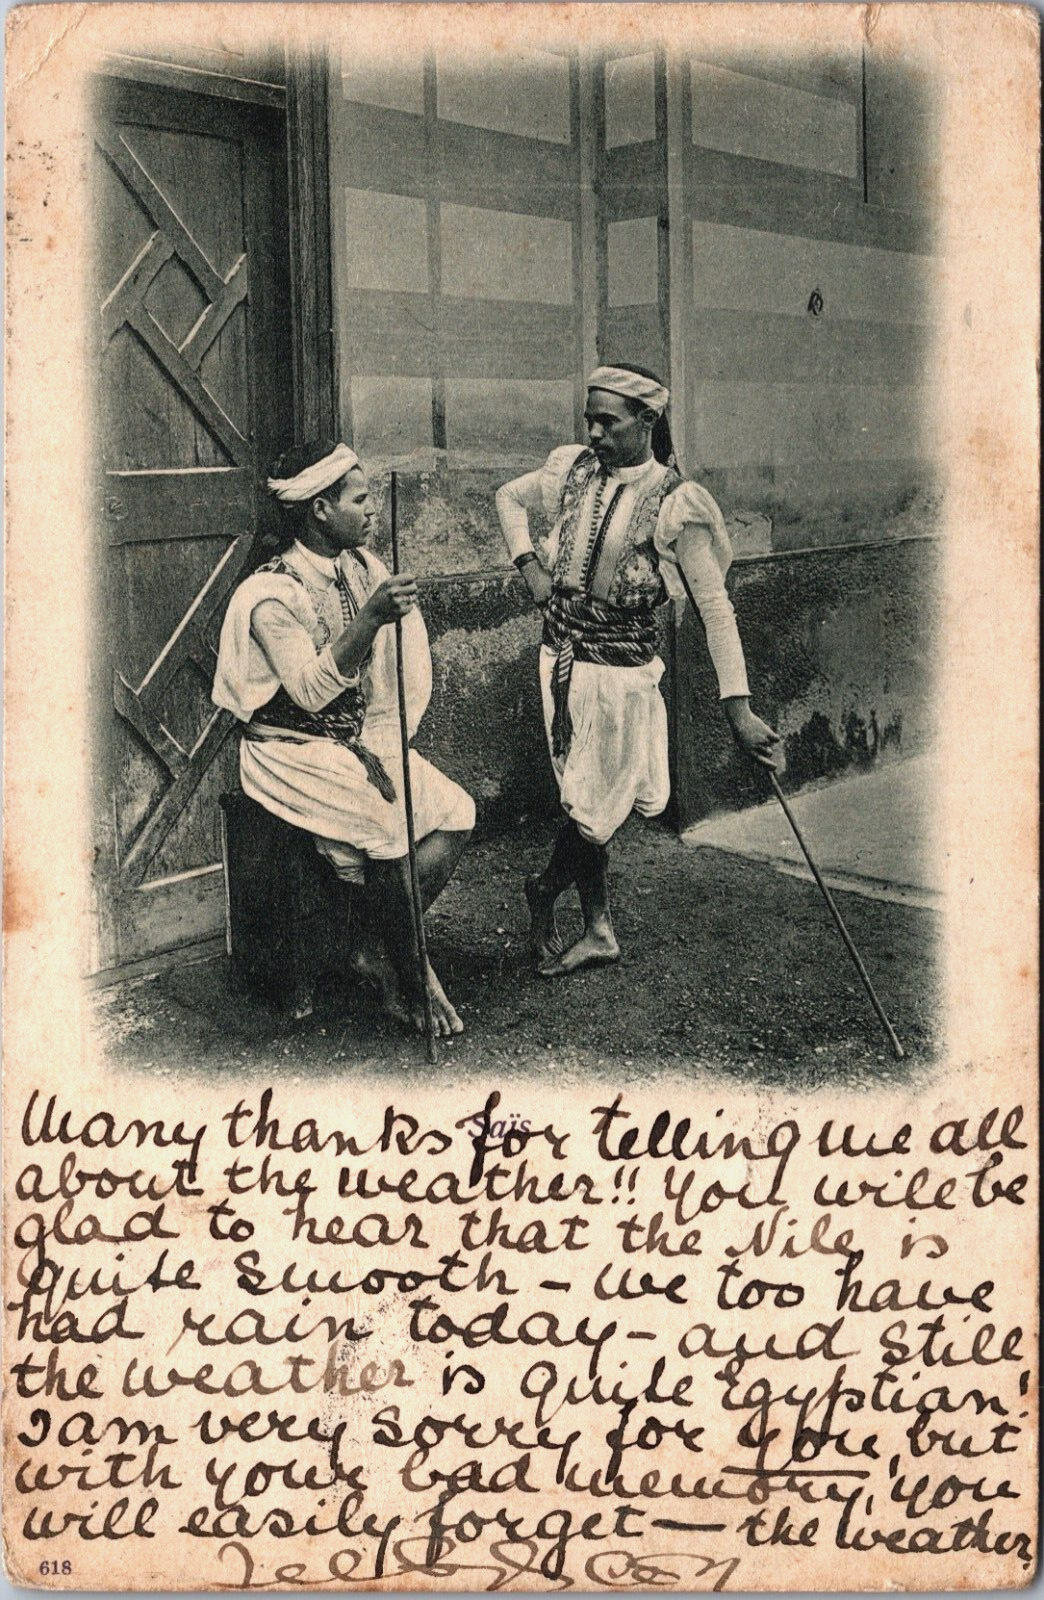 Saïs
Many thanks for telling me all
about the weather!! You will be
glad to hear that the Nile is
quite smooth – we too have
had rain today – and still
the weather is quite Egyptian!
I am very sorry for you, but
with your bad memory, you
will easily forget — the weather.
618